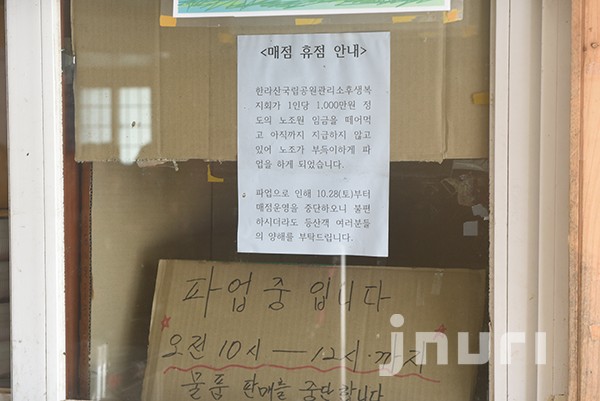 <매점 휴점 안내>
한라산국립공원관리소후생복
지회가 1인당 1,000만원 정
도의 노조원 임금을 떼어먹
고 아직까지 지급하지 않고
있어 노조가 부득이하게 파
업을 하게 되었습니다.
파업으로 인해 10.28(토)부터
매점운영을 중단하오니 불편
하시더라도 등산객 여러분들
의 양해를 부탁드립니다.
파업중입니다
오전 10시 — 12시·까지
물품 판매를 중단합니다
jnuri